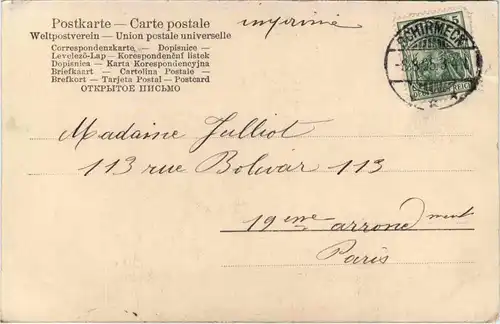 Postkarte — Carte postale
Weltpostverein — Union postale universelle
Correspondenzkarte. — Dopisnice —
Levelező-Lap — Korespondenčuí listek
Dopisnica — Karta Korespondencyjna
Briefkaart — Cartolina Postale —
Brefkort — Tarjeta Postal — Postcard
ОТКРЫТОЕ ПИСЬМО
imprimé
5
SCHIRMECK
Madame Julliot
113 rue Bolivar 113
19eme arrondment
Paris